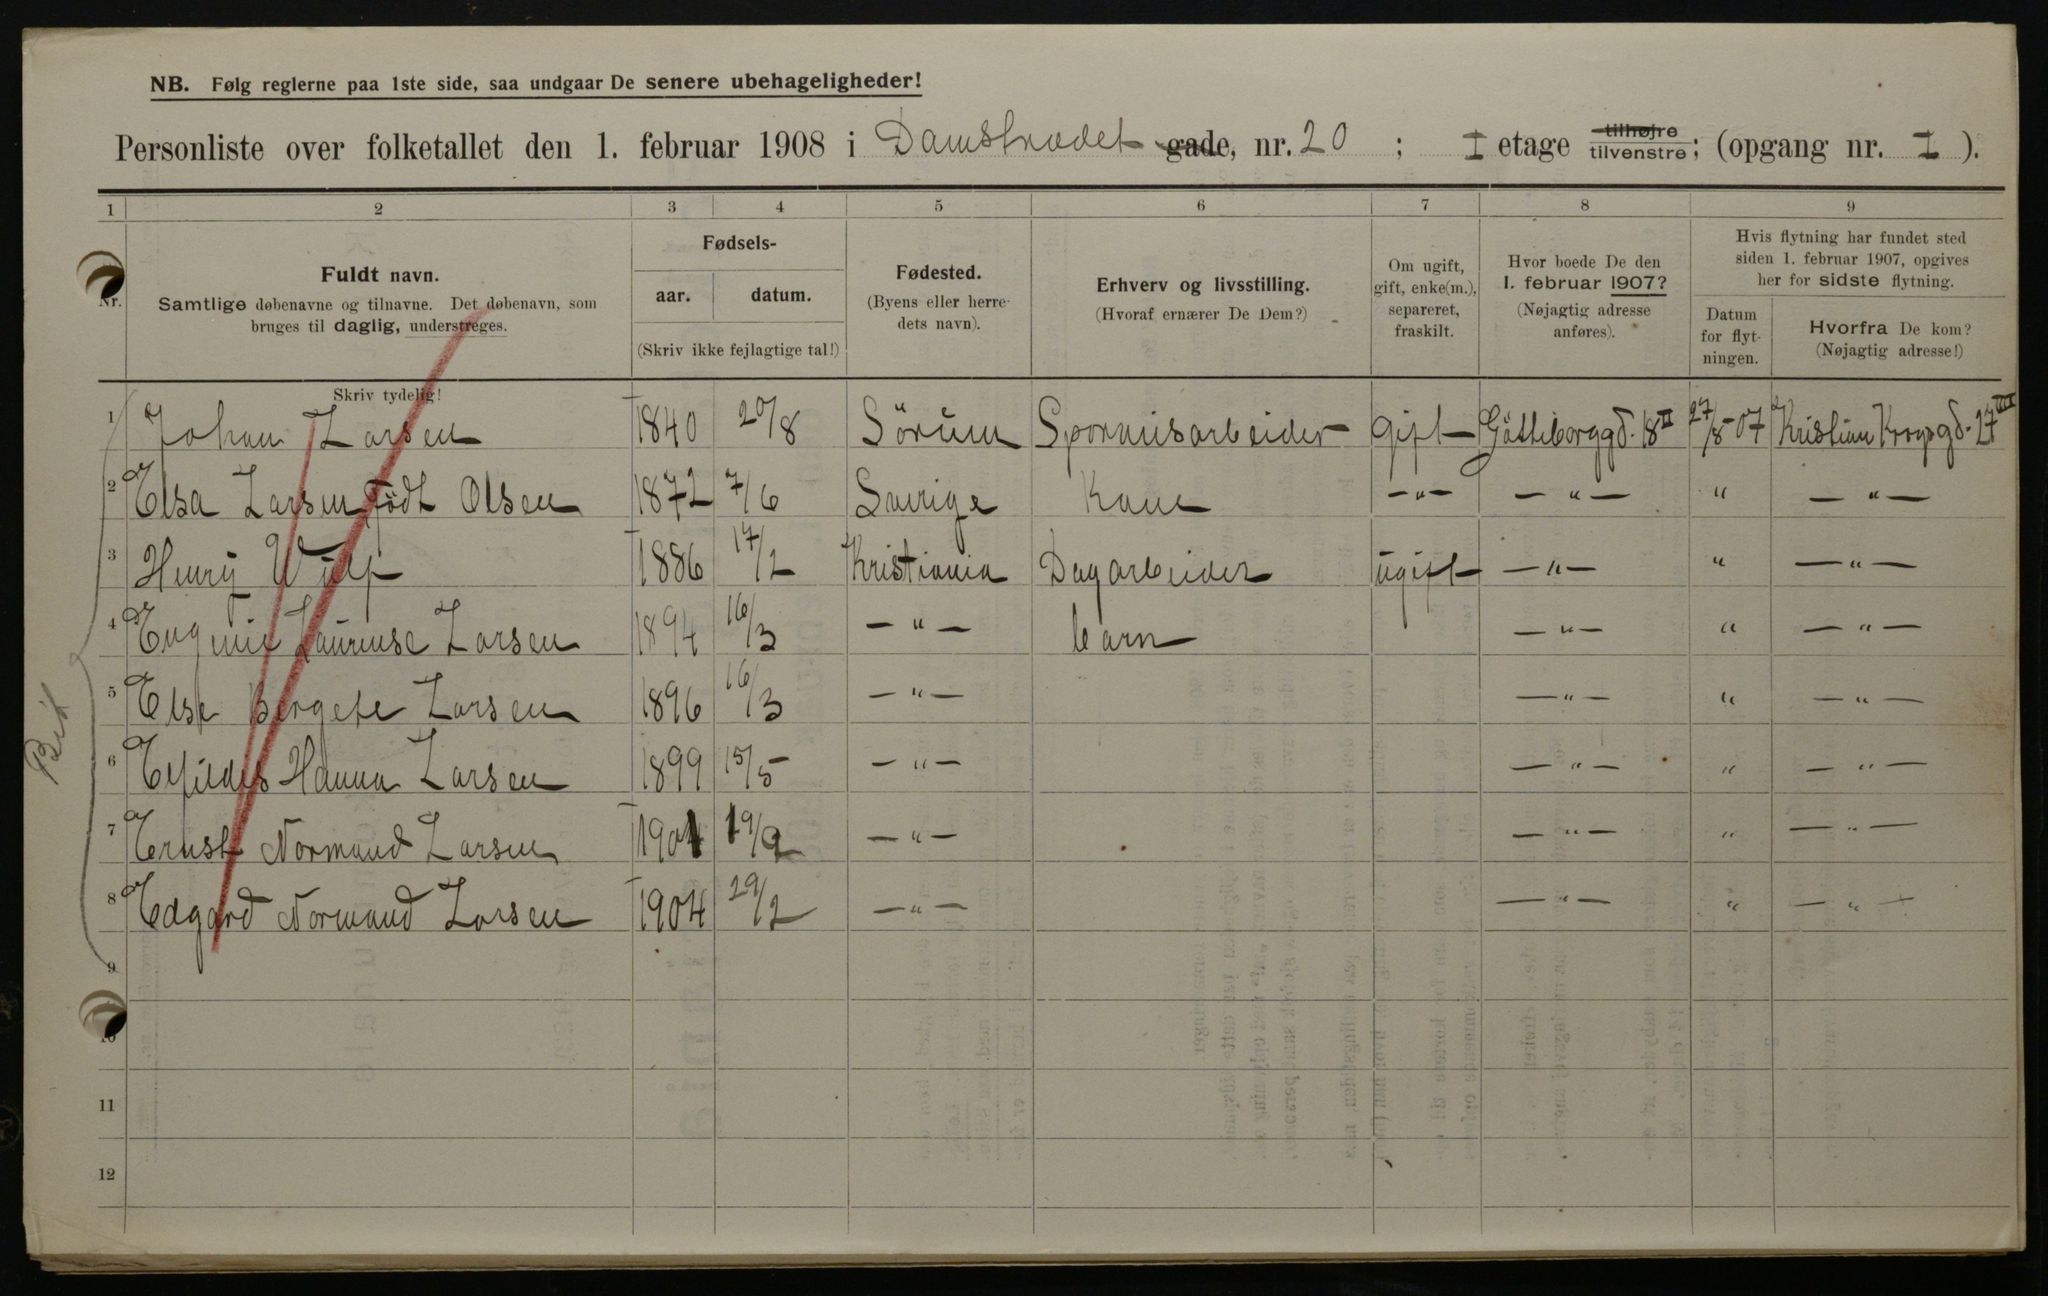 NB. Følg reglerne paa 1ste side, saa undgaar De senere ubehageligheder!
Personliste over folketallet den 1. februar 1908 i Damstrædet gade, nr. 20 ; I etage tilhøjre tilvenstre; (opgang nr. I ).
1 2 3 4 5 6 7 8 9
Nr. Fuldt navn. Samtlige døbenavne og tilnavne. Det døbenavn, som bruges til daglig, understreges.
Fødsels- aar. datum. (Skriv ikke fejlagtige tal!)
Fødested. (Byens eller herredets navn).
Erhverv og livsstilling. (Hvoraf ernærer De Dem?)
Om ugift, gift, enke(m.), separeret, fraskilt.
Hvor boede De den 1. februar 1907? (Nøjagtig adresse anføres).
Hvis flytning har fundet sted siden 1. februar 1907, opgives her for sidste flytning.
Datum for flytningen. Hvorfra De kom? (Nøjagtig adresse!)
Skriv tydelig!
1 Johan Larsen 1840 20/8 Sörum Sporveisarbeider gift Götteborggd. 18 II 27/8-07 Kristian Krogsgd. 27 III
2 Elsa Larsen Födt Olsen 1872 7/6 Sverige Kone —"— —"— " —"—
3 Henry Wulf 1886 17/2 Kristiania Dagarbeider ugift —"— " —"—
4 Eugenie Laurense Larsen 1894 16/3 —"— barn —"— " —"—
5 Else Bergete Larsen 1896 16/3 —"— —"— " —"—
6 Hanna Larsen 1899 15/5 —"— —"— " —"—
7 Ernst Normand Larsen 1901 19/9 —"— —"— " —"—
8 Edgard Normand Larsen 1904 29/2 —"— —"— " —"—
9
10
11
12